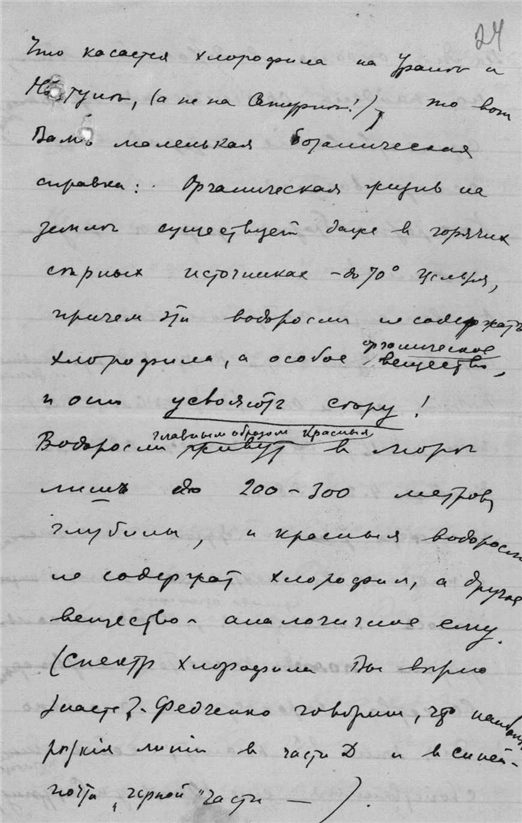 24
Что касается хлорофила на Уранѣ и
Нептунѣ, (а не на Сатурнѣ!), то вот
Вамъ маленькая ботаническая
справка: Органическая жизнь на
землѣ существует даже в горячих
сѣрных источниках – до 70° Цельзія,
причем эти водоросли не содержатъ
хлорофила, а особое органическое вещество,
и они усвояютъ сѣру!
Водоросли главным образом красныя живут в морѣ
лишь до 200–300 метров
глубины, и красныя водоросли
не содержат хлорофил, а другое
вещество – аналогичное ему.
(Спектр хлорофила Вы вѣрно
знаете? – Федченко говорит, что наиболѣе
рѣзкія линіи в части D и в синей –
почти „черной" части — ).